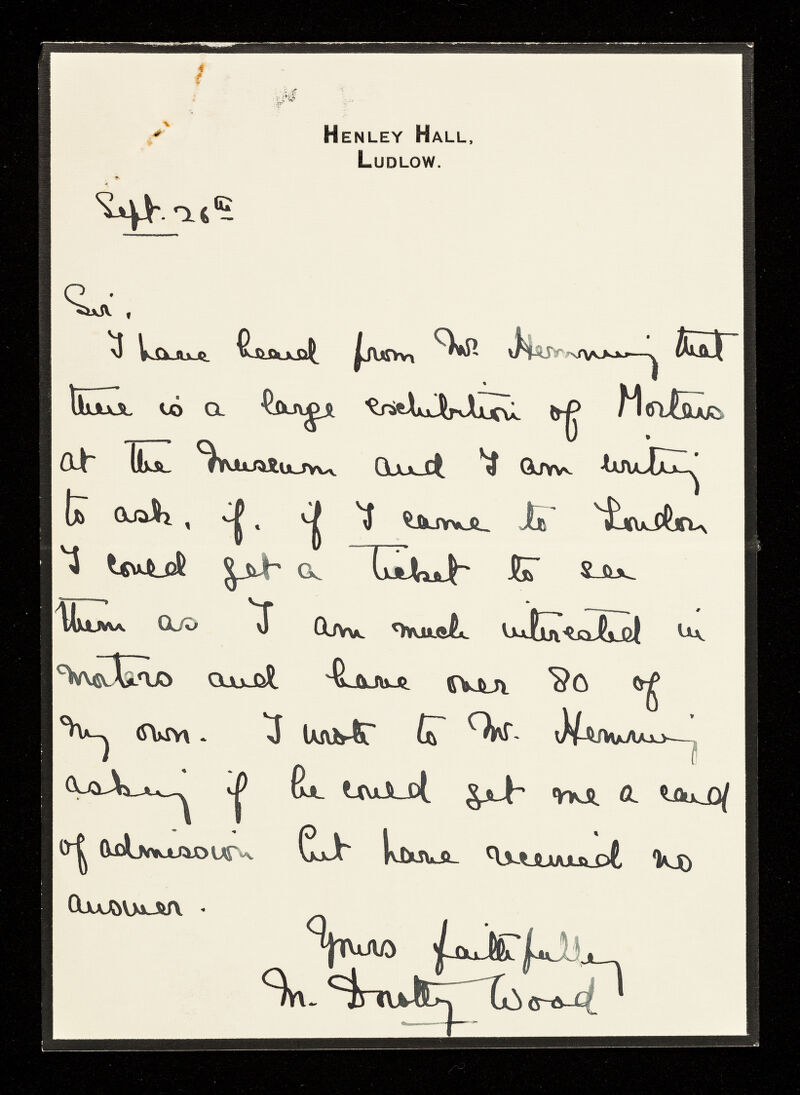 HENLEY HALL,
LUDLOW.
Sept. 26th
Sir,
I have heard from Mr. Hemming that
there is a large exhibition of Mortars
at the Museum and I am writing
to ask, if, if I came to London
I could get a ticket to see
them as I am much interested in
mortars and have over 80 of
my own. I wrote to Mr. Hemming
asking if he could get me a card
of admission but have received no
answer.
Yours faithfully
M. Dorothy Wood